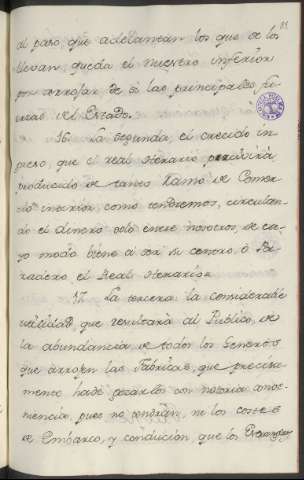 al paso que adelantan los que se los
llevan queda el nuestro inferior
por arrojar de sí las principales fu
erzas del Estado.
16. La segunda, el crecido in
greso, que el real Herario percivirá
producido de tanto Ramo de Comer
cio interior, como tendremos, circulan
do el dinero solo entre nosotros, de cu
yo modo biene a ser su centro, o Pa
radero el Real Herario.
17. La tercera la considerable
utilidad, que resultará al Publico, de
la abundancia de todos los Generos
que arrojen las Fabricas, que precisa
mente hade gozarlos con notoria
combeniencia, pues no tendrán, ni los costes
de Embarco, y conducion, que los Extrangeros